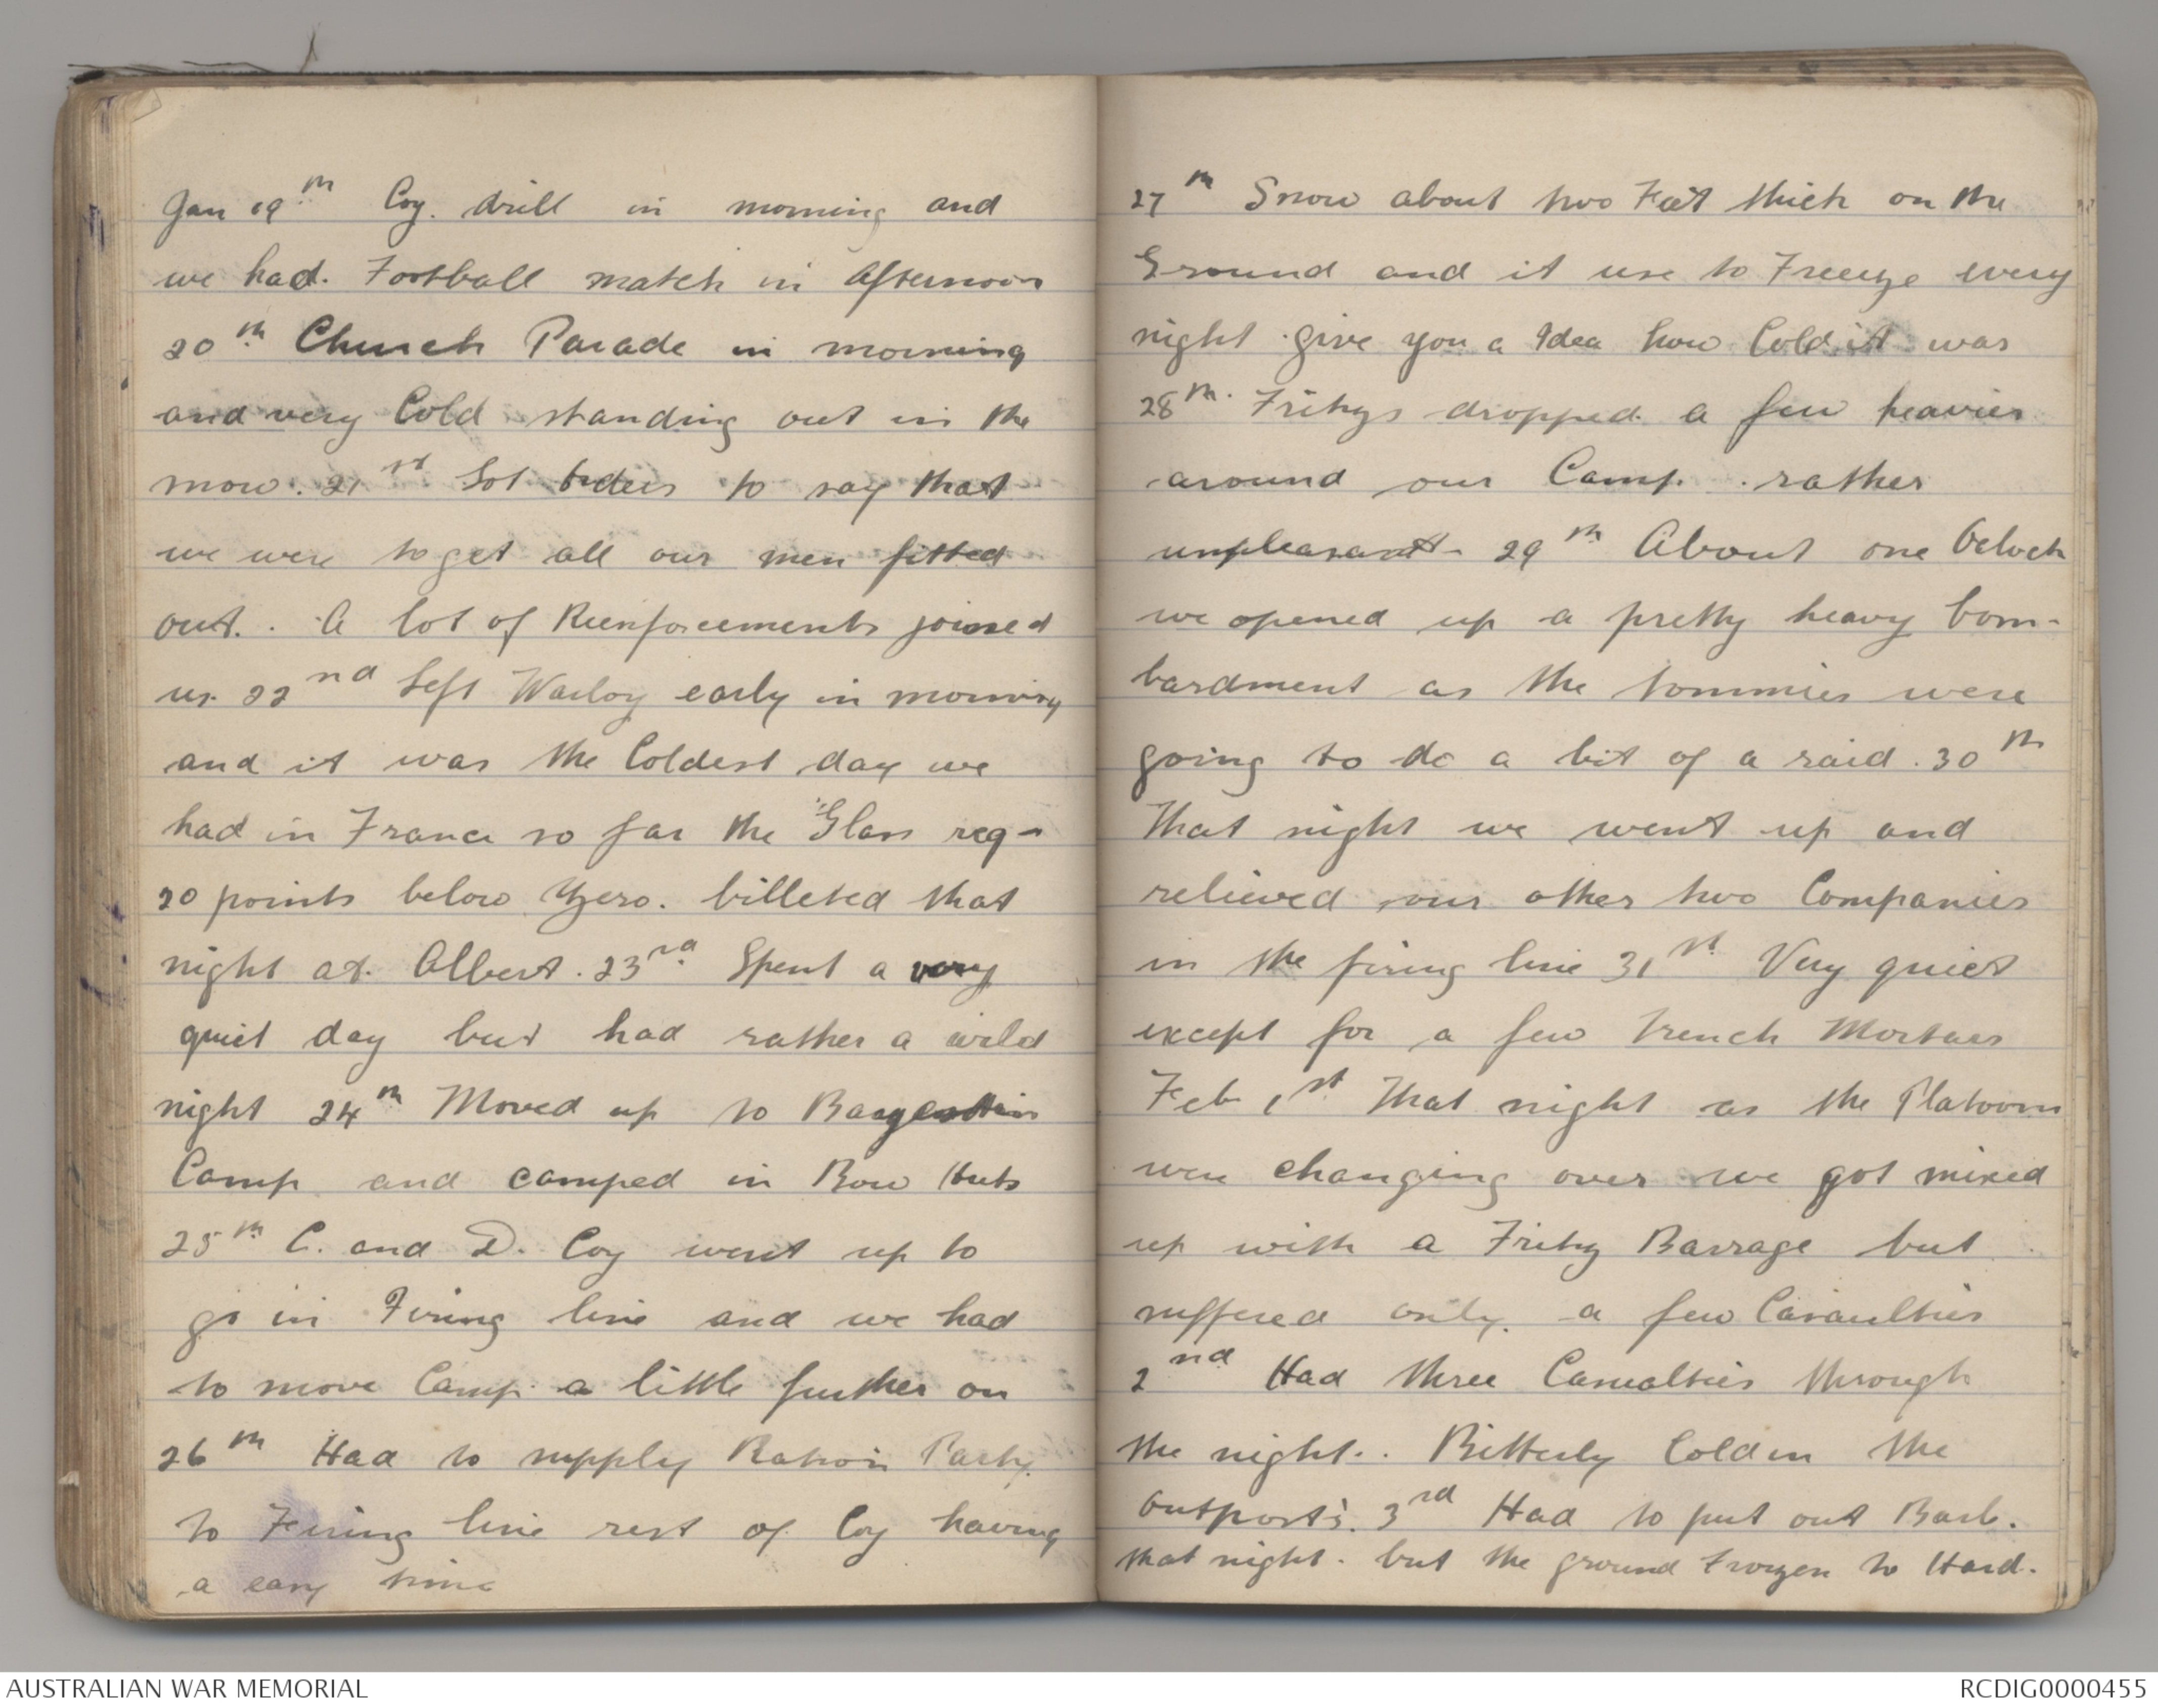 Jan 19th Coy. drill in morning and
we had. Football match in Afternoon
20th Church Parade in morning
and very Cold standing out in the
snow. 21st Got Orders to say that
we were to get all our men fitted
out. A lot of Reinforcements joined
us. 22nd Left Warloy early in morning
and it was the Coldest day we
had in France so far the Glass reg-
20 points below Zero. billeted that
night at Albert. 23rd Spent a very
quiet day but had rather a wild
night 24th Moved up to
Camp and camped in Bow Huts
25th C. and D. Coy went up to
go in Firing line and we had
to move Camp a little further on
26th Had to supply Ration Party
to Firing line rest of Coy having
a easy time
27th Snow about two Feet thick on the
Ground and it use to Freeze every
night give you a Idea how Cold it was
28th. Fritzs dropped a few heavies
around our Camp. rather
unpleasant- 29th About one Oclock
we opened up a pretty heavy bom-
bardment as the tommies were
going to do a bit of a raid. 30th
That night we went up and
relieved our other two Companies
in the firing line 31st Very quiet
except for a few trench Mortars
Feb 1st That night as the Platoons
were changing over we got mixed
up with a Fritz Barrage but
suffered only a few Casaulties
2nd Had three Casualties through
the night. Bitterly Cold in the
Outposts. 3rd Had to put out Barb.
that night. but the ground Frozen to Hard.
AUSTRALIAN WAR MEMORIAL
RCDIG0000455